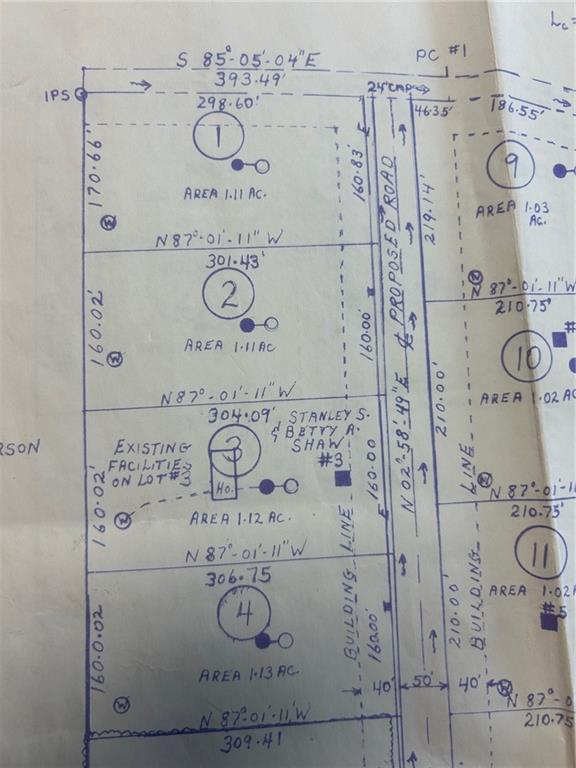 Lc=
S 85°-05'-04"E
PC #1
393.49'
IPS
24"CMP
298.60'
46.35'
186.55'
1
9
170.66'
160.83'
E
219.14'
AREA 1.11 AC.
AREA 1.03
AC.
W
N 87°-01'-11" W
301.43'
W
N 87°-01'-11"W
210.75'
2
10
#
160.02'
160.00'
W
AREA 1.11 AC
AREA 1.02 AC
℄ PROPOSED ROAD
N 02°-58'-49"E
210.00'
N 87°-01'-11" W
304.09'
STANLEY S.
& BETTY A.
SHAW
#3
RSON
EXISTING
FACILITIES
ON LOT #3
3
HO.
160.00
LINE
W
N 87°-01'-11
210.75'
160.02'
W
AREA 1.12 AC.
E
N 87°-01'-11" W
306.75
11
AREA 1.02 A
#5
BUILDING LINE
BUILDING
4
160.0.02
160.00'
210.00'
AREA 1.13 AC.
W
40'
50'
40'
W
N 87°-01'-11" W
309.41
N 87°-0
210.75